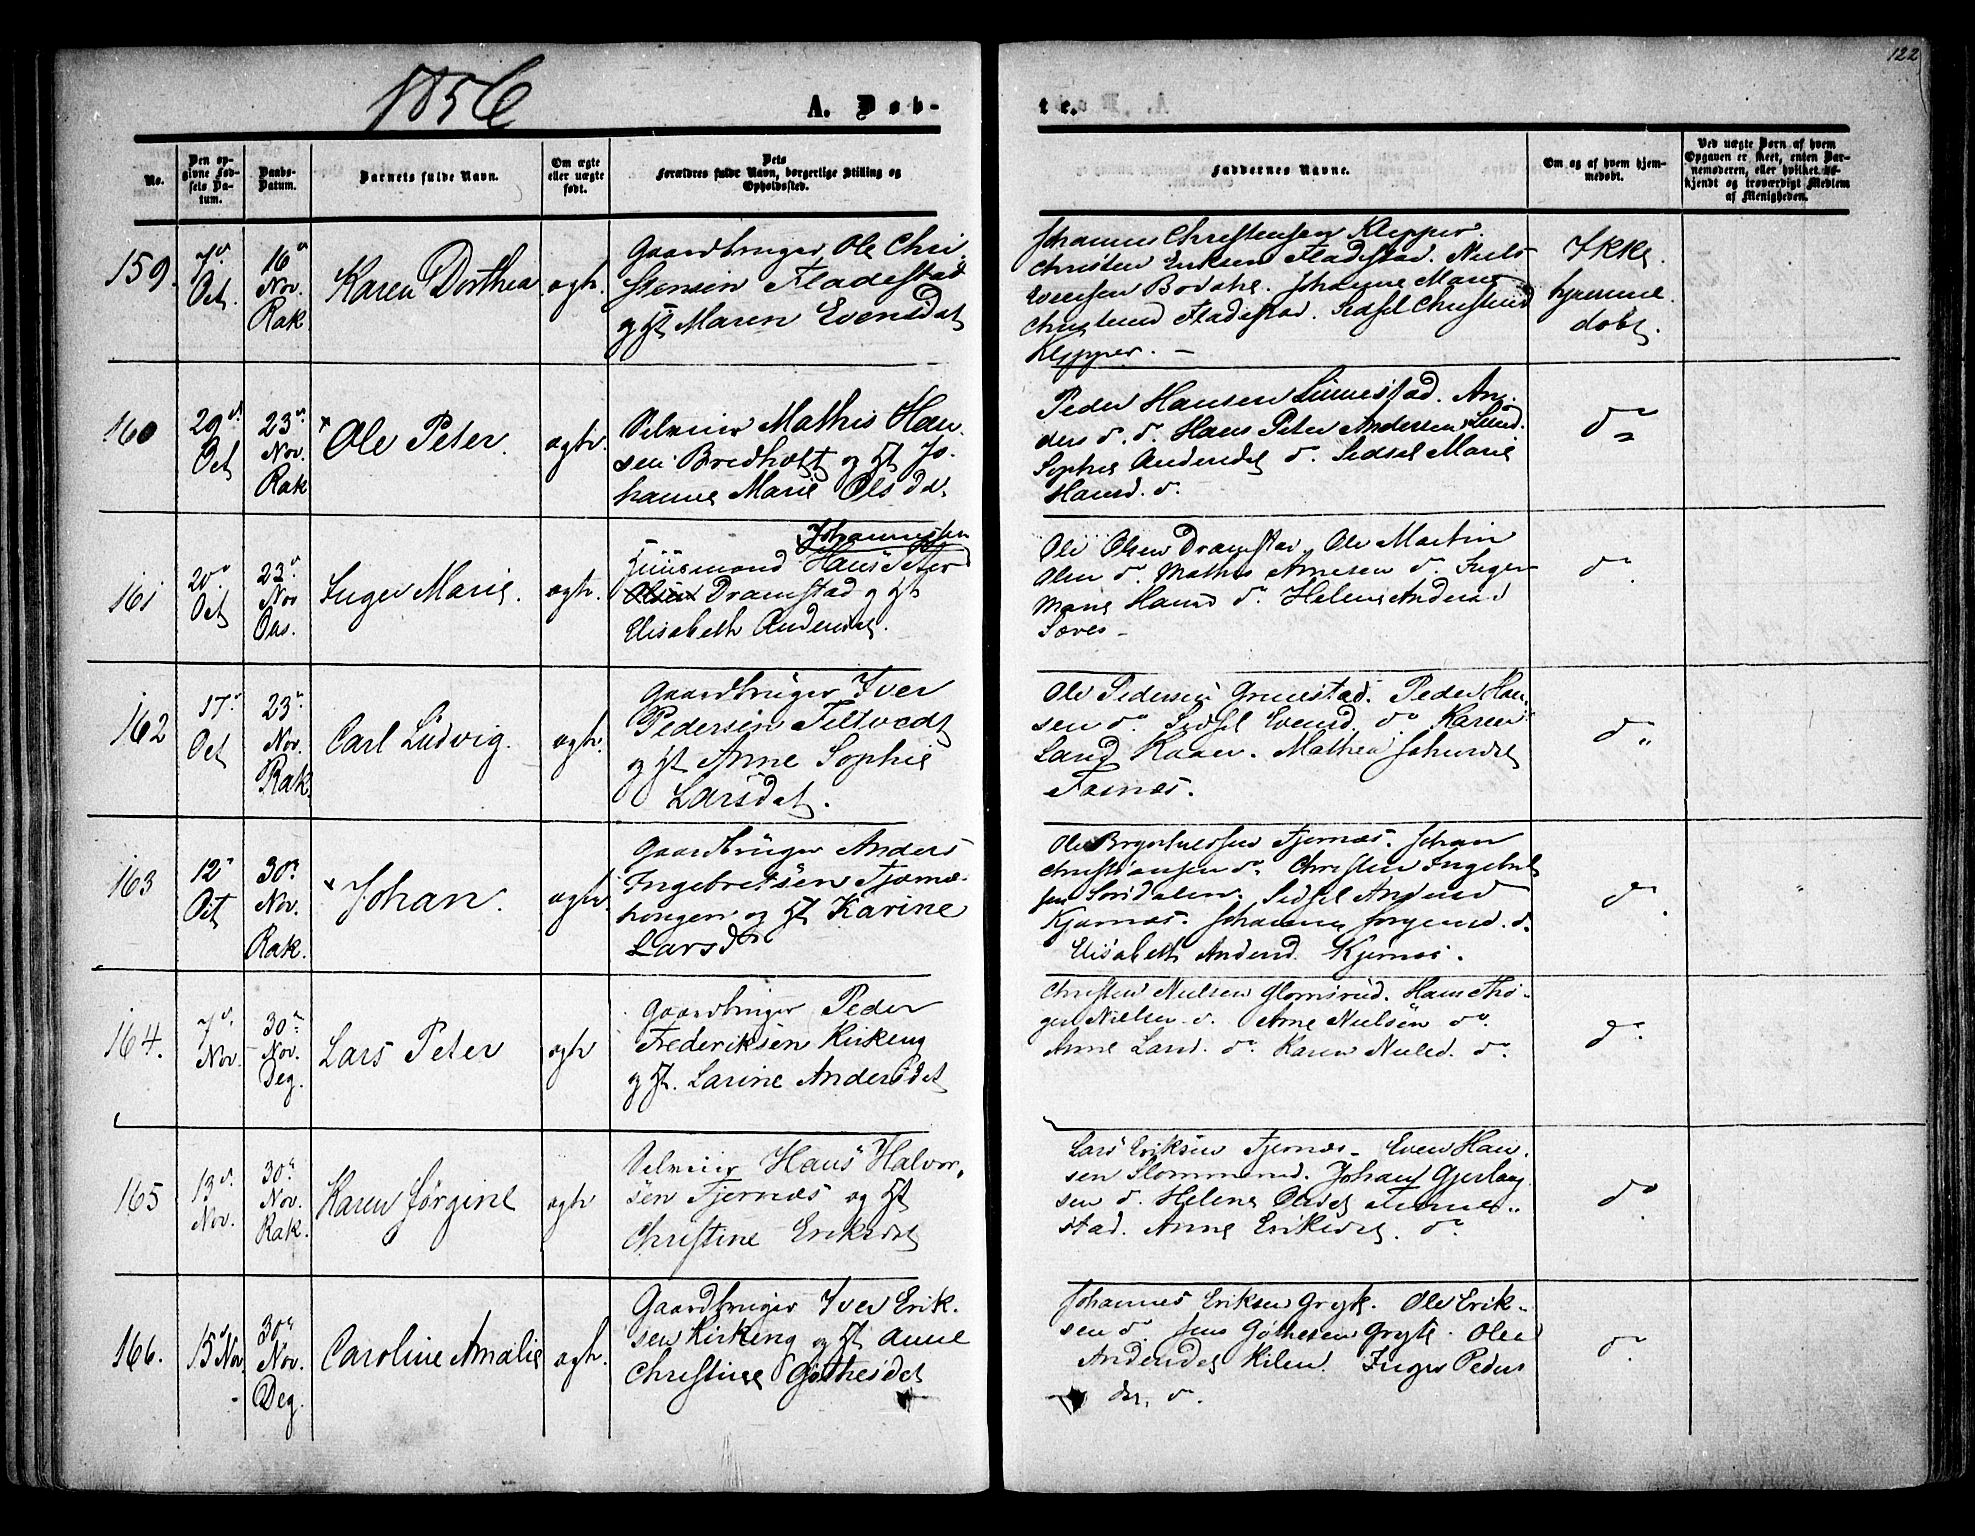 1856
A. Døb-
te.
122
No.
Den opgivne Fødsels Datum.
Daabs-Datum.
Barnets fulde Navn.
Om ægte eller uægte født.
Dets Forældres fulde Navn, borgerlige Stilling og Opholdssted.
Faddernes Navne.
Om og af hvem hjemmedøbt.
Ved uægte Børn af hvem Opgaven er skeet, enten Barnemoderen, eller hvilket bekjendt og troværdigt Medlem af Menigheden.
159.
7de Oct.
16de Nov. Rak
Karen Dorthea
ægte.
Gaardbruger Ole Chri-
stensen Fladestad
og H Maren Evensdat
Johannes Christensen Klepper.
Christen Eriksen Fladestad. Niels
Evensen Bodahl. Johanne Marie
Christensd Fladestad. Sidsel Christensd
Klepper. -
Ikke
hjemme
døbt.
160
29de Oct
23de Nov. Rak
× Ole Peter.
ægte.
Selveier Mathis Han-
sen Bredholt og H Jo-
hanne Marie Olsdat.
Peder Hansen Linnestad. An-
ders do. do. Hans Peter Andersen Lund.
Sophie Andersdat do. Sidsel Marie
Hansd. do.
do
161
20de Oct
23de Nov Aas.
Inger Marie.
ægte.
Johannessen
Huusmand Hans Peter
Olsen Dramstad og H
Elisabeth Andersdat.
Ole Olsen Dramstad. Ole Martin
Olsen do. Mathis Arnesen do. Inger
Marie Hansd do. Helene Andersd
Sæves -
do
162
17de Oct
23de Nov. Rak.
Carl Ludvig.
ægte.
Gaardbruger Iver
Pedersen Teltvedt
og H Anne Sophie
Larsdat.
Ole Pedersen Grinestad. Peder Han-
sen do. Sidsel Evensd. do. Karen
Larsd Kaaen. Mathea Johansdat
do
163
12de Oct
30de Nov. Rak.
× Johan.
ægte
Gaardbruger Anders
Ingebretsen Tjernæs-
hougen og H Karine
Larsdtr
Ole Tjernæs. Johan
Christiansen do. Christen Ingebret
sen Sørdalen. Sidsel Andersd
Kjærnæs. Johanne Jørgensd. do.
Elisabeth Andersd. Kjernæs.
do
164.
7de Nov.
30de Nov. Deg.
Lars Peter
ægte
Gaardbruger Peder
Frederiksen Kirkeng
og H. Larine Andersdat
Christen Nielsen Glomsrud. Hans Tho-
Nielsen do. Arne Nielsen do.
Anne Larsd. do. Karen Nielsd. do.
do
165
13de Nov.
30de Nov. Rak.
Karen Jørgine
ægte
Selveier Hans Halvor-
sen Tjernæs og H
Christine Eriksdat
Lars Eriksen Tjernæs. Even Han-
sen Slommerud. Johan
sen do. Helene Olsdat
stad. Anne Eriksdat. do
do
166.
15de Nov.
30de Nov. Deg.
Caroline Amalie
ægte.
Gaardbruger Iver Erik-
sen Kirkeng og H Anne
Christine Gothesdat
Johannes Eriksen Gryte. Ole Erik-
sen do. Jens Gothesen Gryte.
Andersdat Kilen. Inger Peders
dat. do.
do